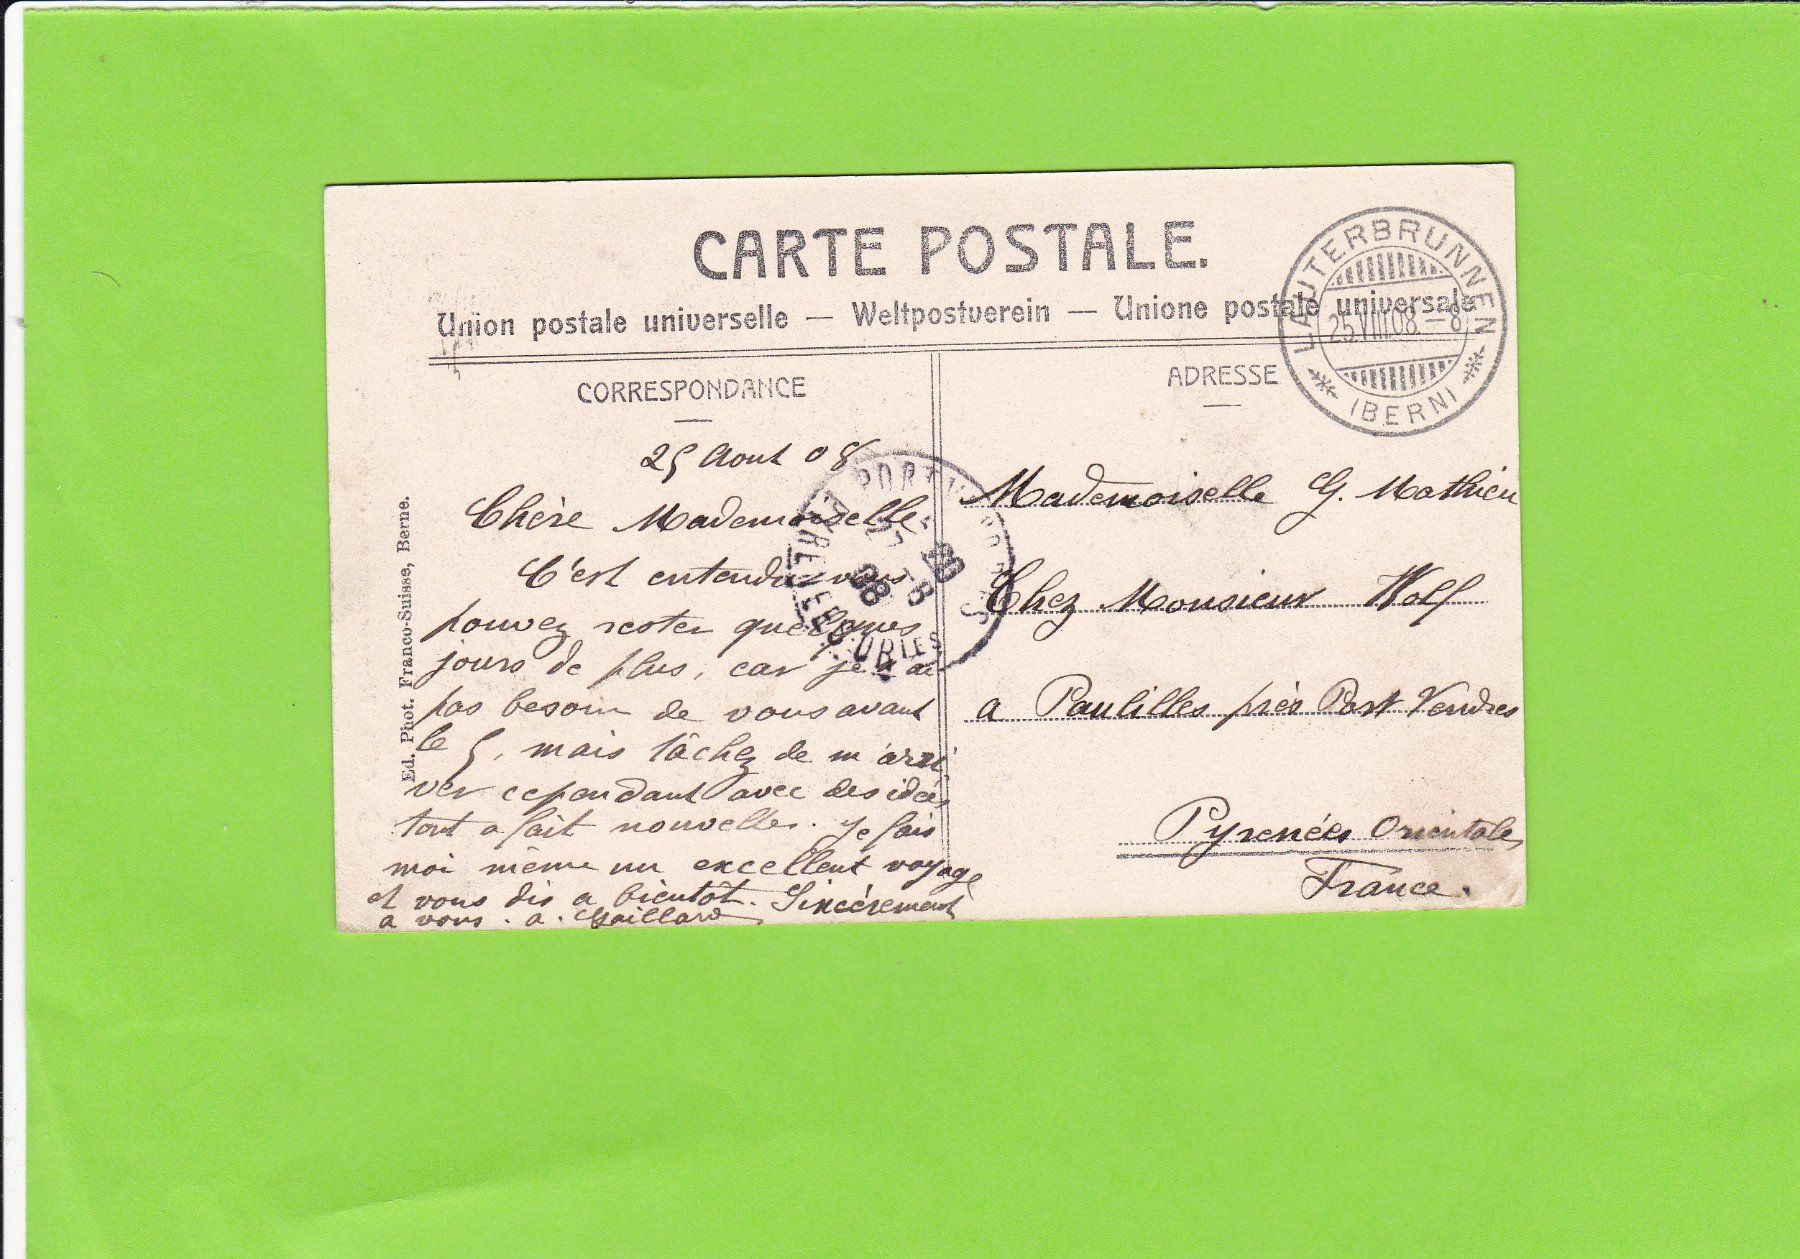 CARTE POSTALE.
Union postale universelle — Weltpostverein — Unione postale universale
LAUTERBRUNNEN
25.VIII.08.–8
(BERN)
CORRESPONDANCE
25 Aout 08
Chère Mademoiselle
C'est entendu vous
pouvez rester quelques
jours de plus, car je n'ai
pas besoin de vous avant
le 5, mais tâchez de m'arri
ver cependant avec des idées
tout a fait nouvelles. Je fais
moi même un excellent voyage
et vous dis a bientôt. Sincèrement
a vous. a. Gaillard
ADRESSE
Mademoiselle G. Mathieu
Chez Monsieur Wolf
a Paulilles près Port Vendres
Pyrenées Orientales
France.
PORT VENDRES
PYRENEES ORIENTALES
08
Ed. Phot. Franco-Suisse, Berne.